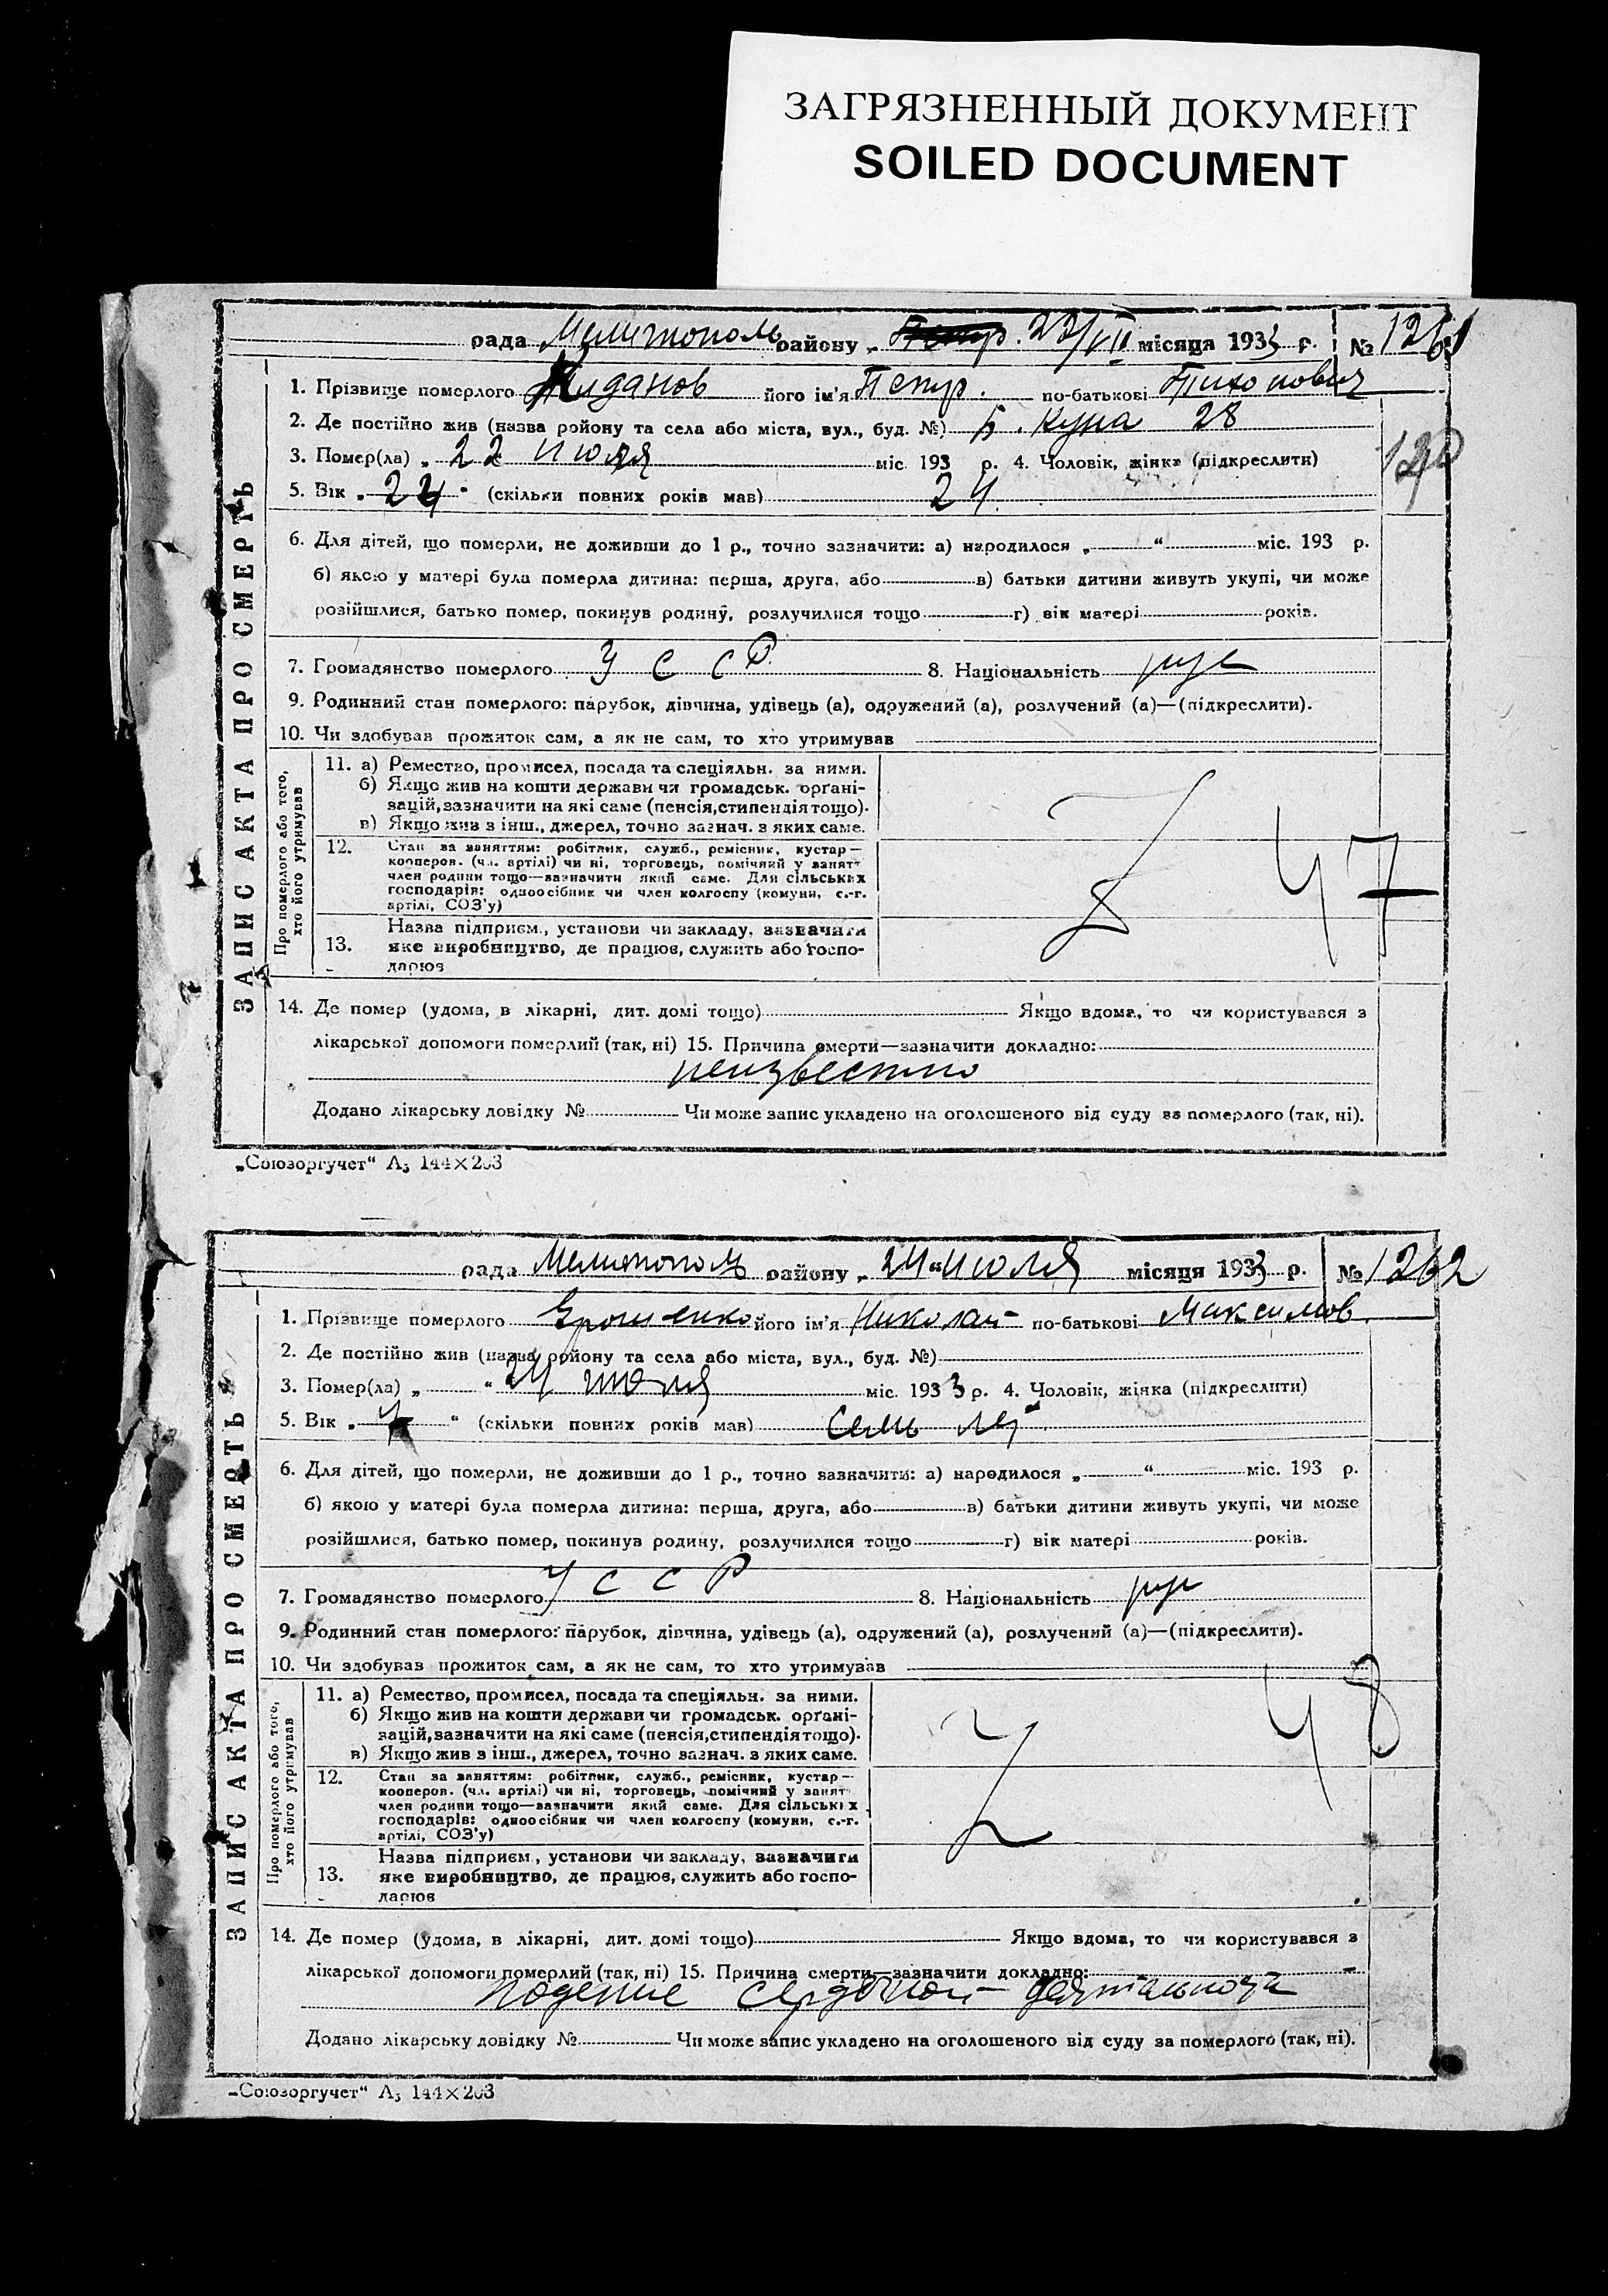 ЗАГРЯЗНЕННЫЙ ДОКУМЕНТ
SOILED DOCUMENT
ЗАПИС АКТА ПРО СМЕРТЬ
рада Мелитополь району „ 1933 р. № 1261
1. Прізвище померлого його ім'я Петр. по-батькові Тихонович
2. Де постійно жив (назва району та села або міста, вул., буд. №) 28
3. Помер(ла) „ 22 июля міс. 193 р. 4. Чоловік, жінка (підкреслити)
5. Вік „ 24 " (скільки повних років мав) 24.
6. Для дітей, що померли, не доживши до 1 р., точно зазначити: а) народилося „ “ міс. 193 р.
б) якою у матері була померла дитина: перша, друга, або в) батьки дитини живуть укупі, чи може
розійшлися, батько помер, покинув родину, розлучилися тощо г) вік матері років.
7. Громадянство померлого УССР. 8. Національність рус
9. Родинний стан померлого: парубок, дівчина, удівець (а), одружений (а), розлучений (а)—(підкреслити).
10. Чи здобував прожиток сам, а як не сам, то хто утримував
Про померлого або того,
хто його утримував
11. а) Ремество, промисел, посада та спеціяльн. за ними.
б) Якщо жив на кошти держави чи громадськ. орґані-
зацій, зазначити на які саме (пенсія, стипендія тощо).
в) Якщо жив з інш., джерел, точно зазнач. з яких саме.
12. Стан за заняттям: робітник, служб., ремісник, кустар—
кооперов. (чл. артілі) чи ні, торговець, помічний у занятт
член родини тощо—зазначити який саме. Для сільських
господарів: одноосібник чи член колгоспу (комуни, с.-г.
артілі, СОЗ'у)
47
13. Назва підприєм., установи чи закладу, зазначити
яке виробництво, де працює, служить або госпо-
дарює
14. Де помер (удома, в лікарні, дит. домі тощо) Якщо вдома, то чи користувався з
лікарської допомоги померлий (так, ні) 15. Причина смерти—зазначити докладно:
неизвестно
Додано лікарську довідку № Чи може запис укладено на оголошеного від суду за померлого (так, ні).
„Союзоргучет“ А₅ 144×203
ЗАПИС АКТА ПРО СМЕРТЬ
рада Мелитополь району „ 24 “ июля місяця 1933 р. № 1262
1. Прізвище померлого Ерошенко його ім'я Николай по-батькові Максимов.
2. Де постійно жив (назва району та села або міста, вул., буд. №)
3. Помер(ла) „ “ 24 июля міс. 1933 р. 4. Чоловік, жінка (підкреслити)
5. Вік „ 7 “ (скільки повних років мав) Семь лет
6. Для дітей, що померли, не доживши до 1 р., точно зазначити: а) народилося „ “ міс. 193 р.
б) якою у матері була померла дитина: перша, друга, або в) батьки дитини живуть укупі, чи може
розійшлися, батько помер, покинув родину, розлучилися тощо г) вік матері років.
7. Громадянство померлого УССР 8. Національність рус
9. Родинний стан померлого: парубок, дівчина, удівець (а), одружений (а), розлучений (а)—(підкреслити).
10. Чи здобував прожиток сам, а як не сам, то хто утримував
Про померлого або того,
хто його утримував
11. а) Ремество, промисел, посада та спеціяльн. за ними.
б) Якщо жив на кошти держави чи громадськ. орґані-
зацій, зазначити на які саме (пенсія, стипендія тощо).
в) Якщо жив з інш., джерел, точно зазнач. з яких саме.
48
12. Стан за заняттям: робітник, служб., ремісник, кустар—
кооперов. (чл. артілі) чи ні, торговець, помічний у занят
член родини тощо—зазначити який саме. Для сільських
господарів: одноосібник чи член колгоспу (комуни, с.-г.
артілі, СОЗ'у)
13. Назва підприєм., установи чи закладу, зазначити
яке виробництво, де працює, служить або госпо-
дарює
14. Де помер (удома, в лікарні, дит. домі тощо) Якщо вдома, то чи користувався з
лікарської допомоги померлий (так, ні) 15. Причина смерти—зазначити докладно:
Додано лікарську довідку № Чи може запис укладено на оголошеного від суду за померлого (так, ні).
„Союзоргучет“ А₅ 144×203